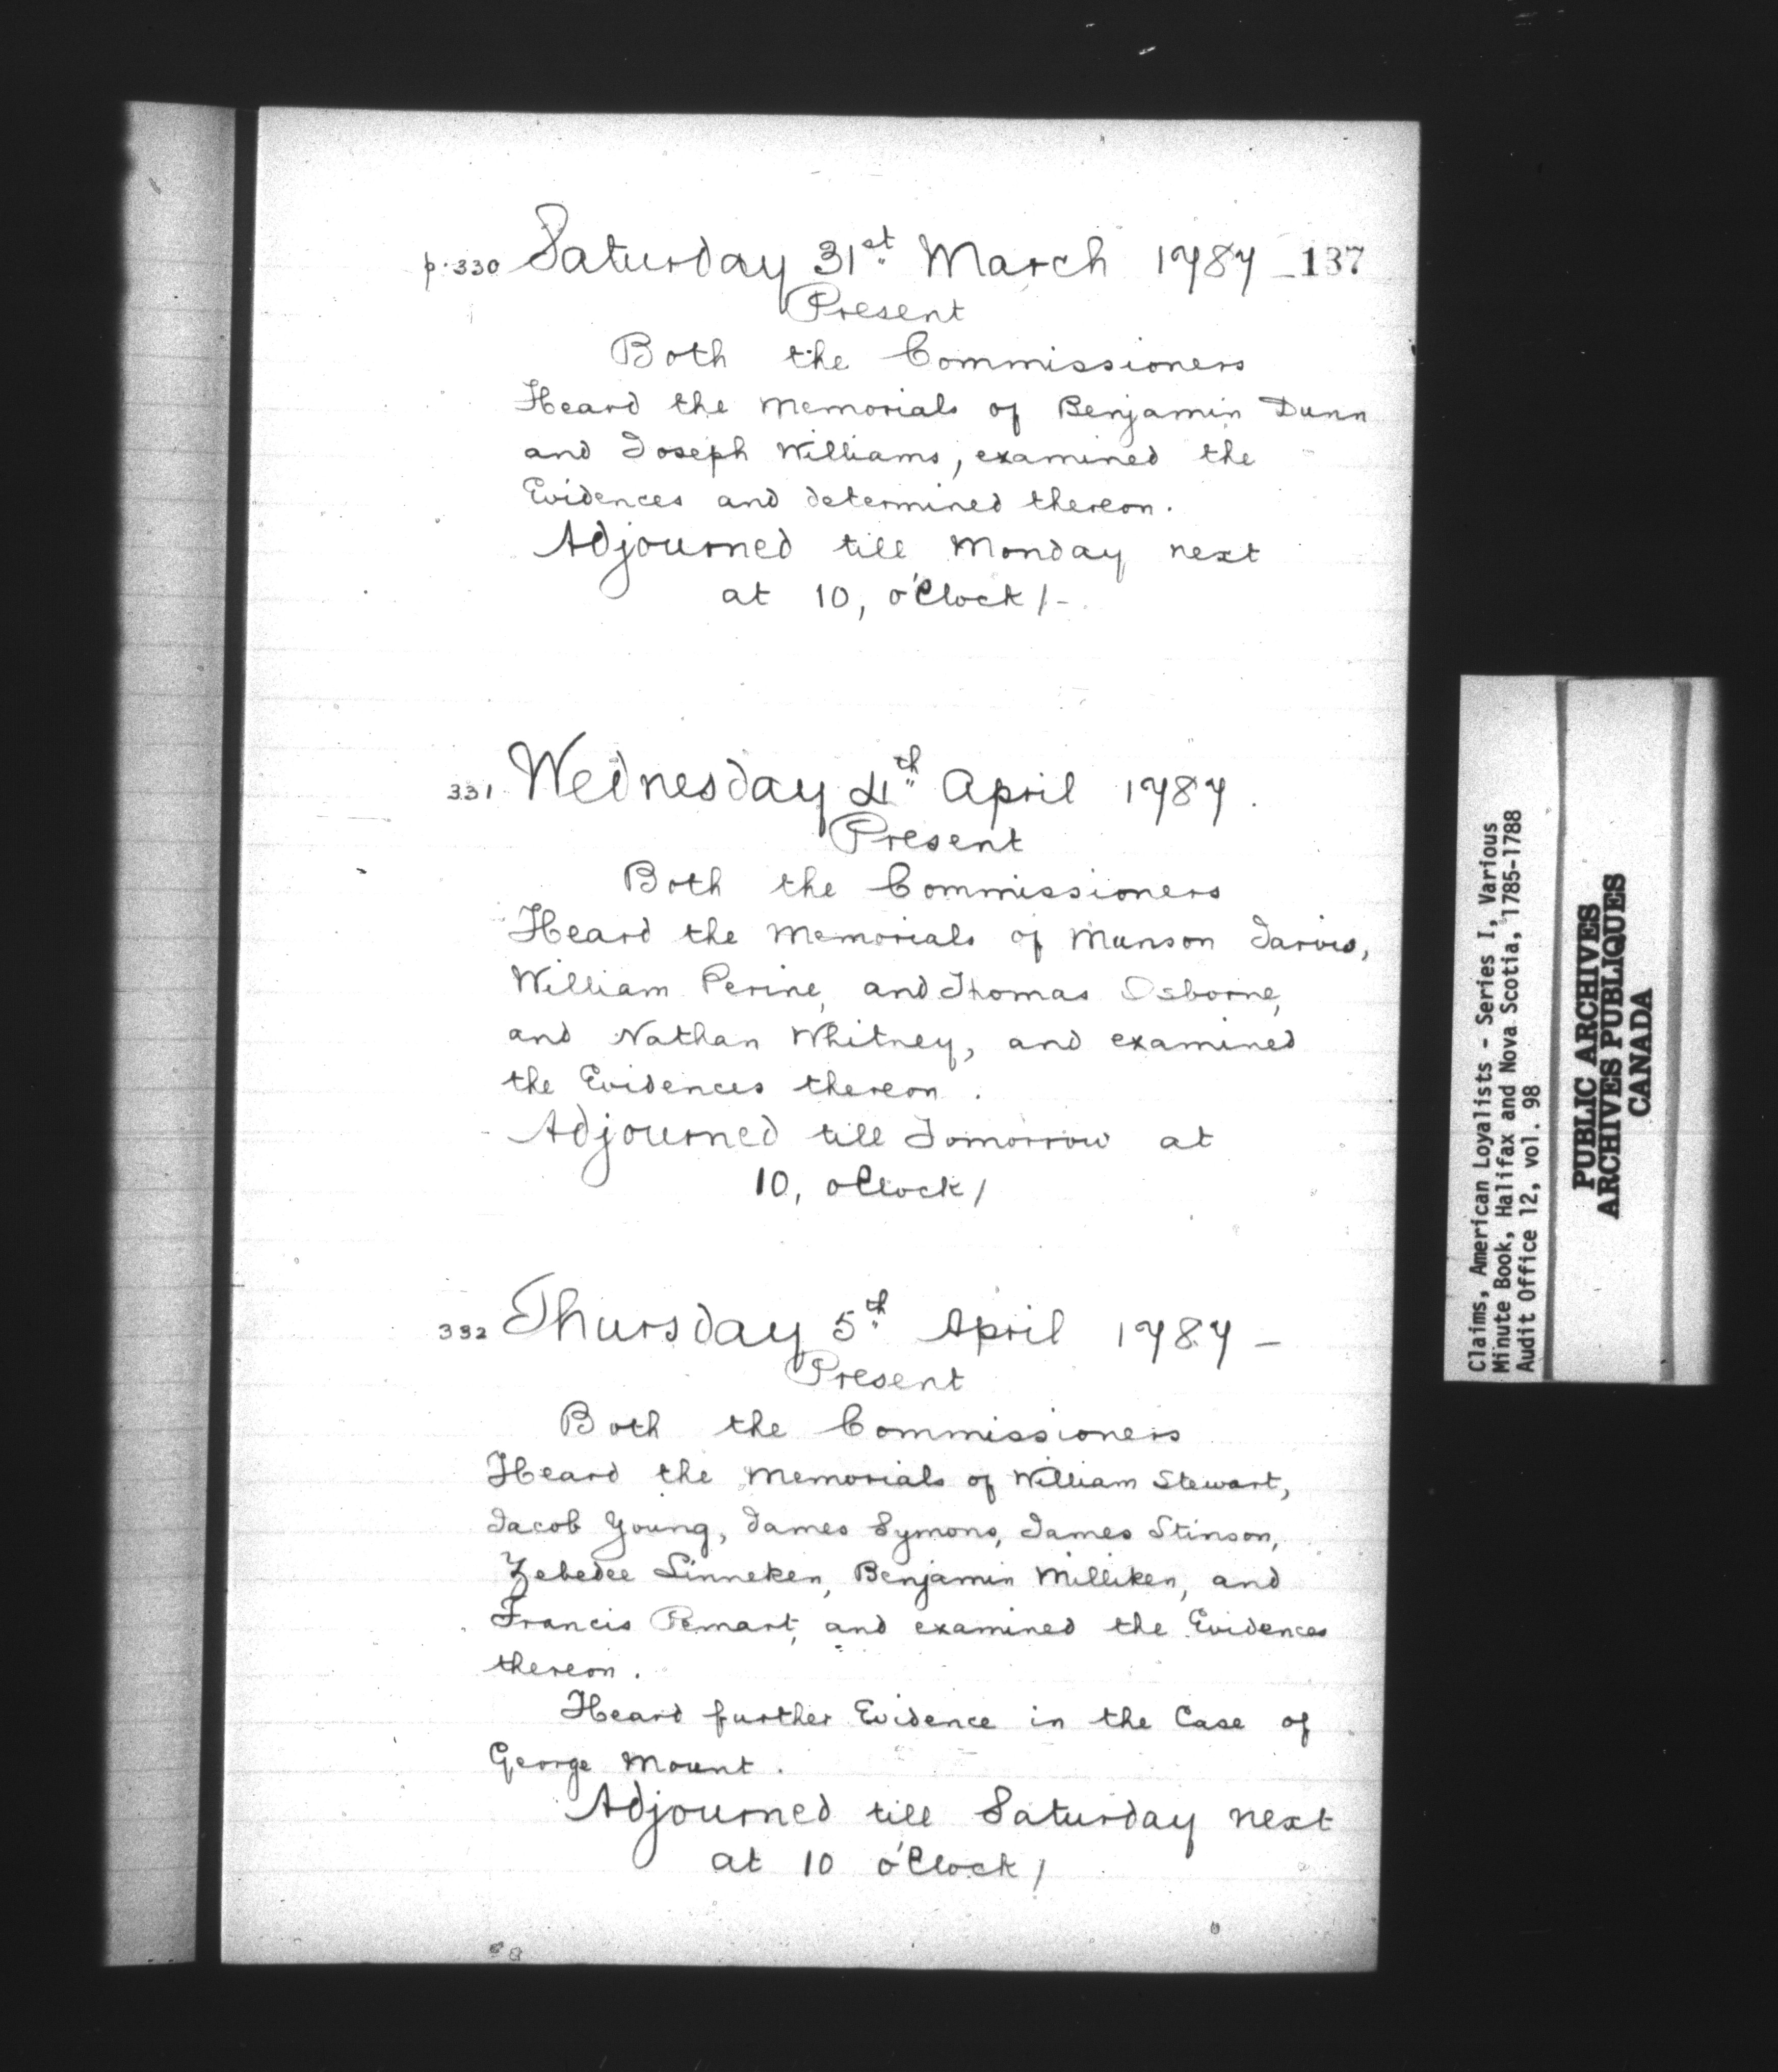 p.330 Saturday 31st March 1787 - 137
Present
Both the Commissioners
Heard the Memorials of Benjamin Dunn
and Joseph Williams, examined the
Evidences and determined thereon.
Adjourned till Monday next
at 10, o'Clock/-
331 Wednesday 4th April 1787.
Present
Both the Commissioners
Heard the Memorials of Munson Jarvis,
William Perine, and Thomas Osborne,
and Nathan Whitney, and examined
the Evidences thereon.
Adjourned till Tomorrow at
10, oClock/
332 Thursday 5th April 1787 -
Present
Both the Commissioners
Heard the Memorials of William Stewart,
Jacob Young, James Symons, James Stinson,
Zebedee Linneken, Benjamin Milliken, and
Francis Pemart, and examined the Evidences
thereon.
Heard further Evidence in the Case of
George Mount.
Adjourned till Saturday next
at 10 o'Clock/
Claims, American Loyalists - Series I, Various
Minute Book, Halifax and Nova Scotia, 1785-1788
Audit Office 12, vol. 98
PUBLIC ARCHIVES
ARCHIVES PUBLIQUES
CANADA